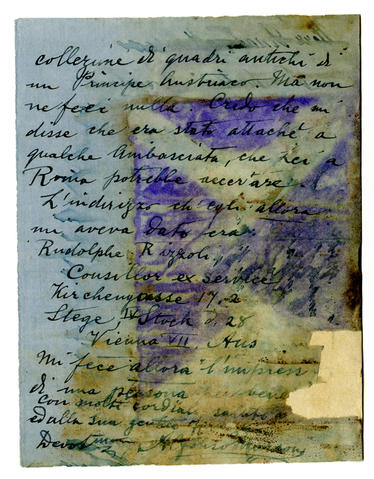 collezione di quadri antichi di
un Principe Austriaco. Ma non
ne feci nulla. Credo che mi
disse che era stato attaché a
qualche Ambasciata, che Lei a
Roma potrebbe accertare.
L'indirizzo ch'egli allora
mi aveva dato era:
Rudolphe Rizzoli,
Consillor ex service
Kirchengasse 17. 2
Stege, IV Stock d. 28
Vienna VII. Aus
Mi fece allora l'impress
di una persona
con molti cordiali saluti a
ed alla sua gentile
Devot